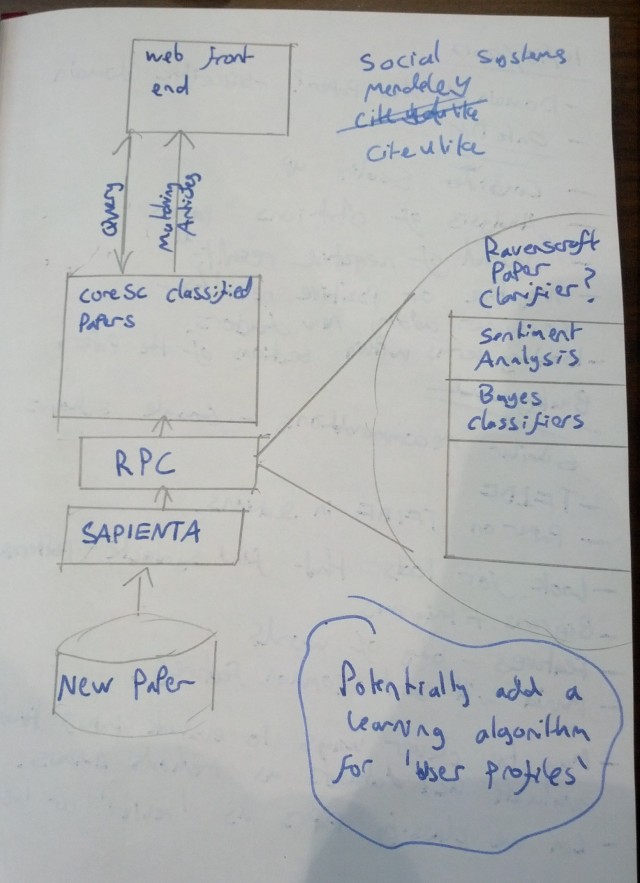 web front
end
Social Systems
Mendeley
Citeulike
Query
Matching
Articles
CoreSc classified
Papers
Ravenscroft
Paper
Clarifier?
Sentiment
Analysis
Bayes
classifiers
RPC
SAPIENTA
New Paper
Potentially add a
learning algorithm
for 'user profiles'